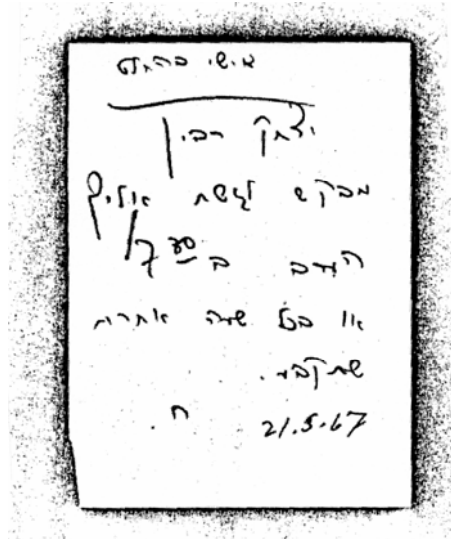 אישי בהחלט
יצחק רבין
מבקש לגשת אליך
הערב ב 7³⁰
או בכל שעה אחרת
שתקבע.
ח. 21.5.67